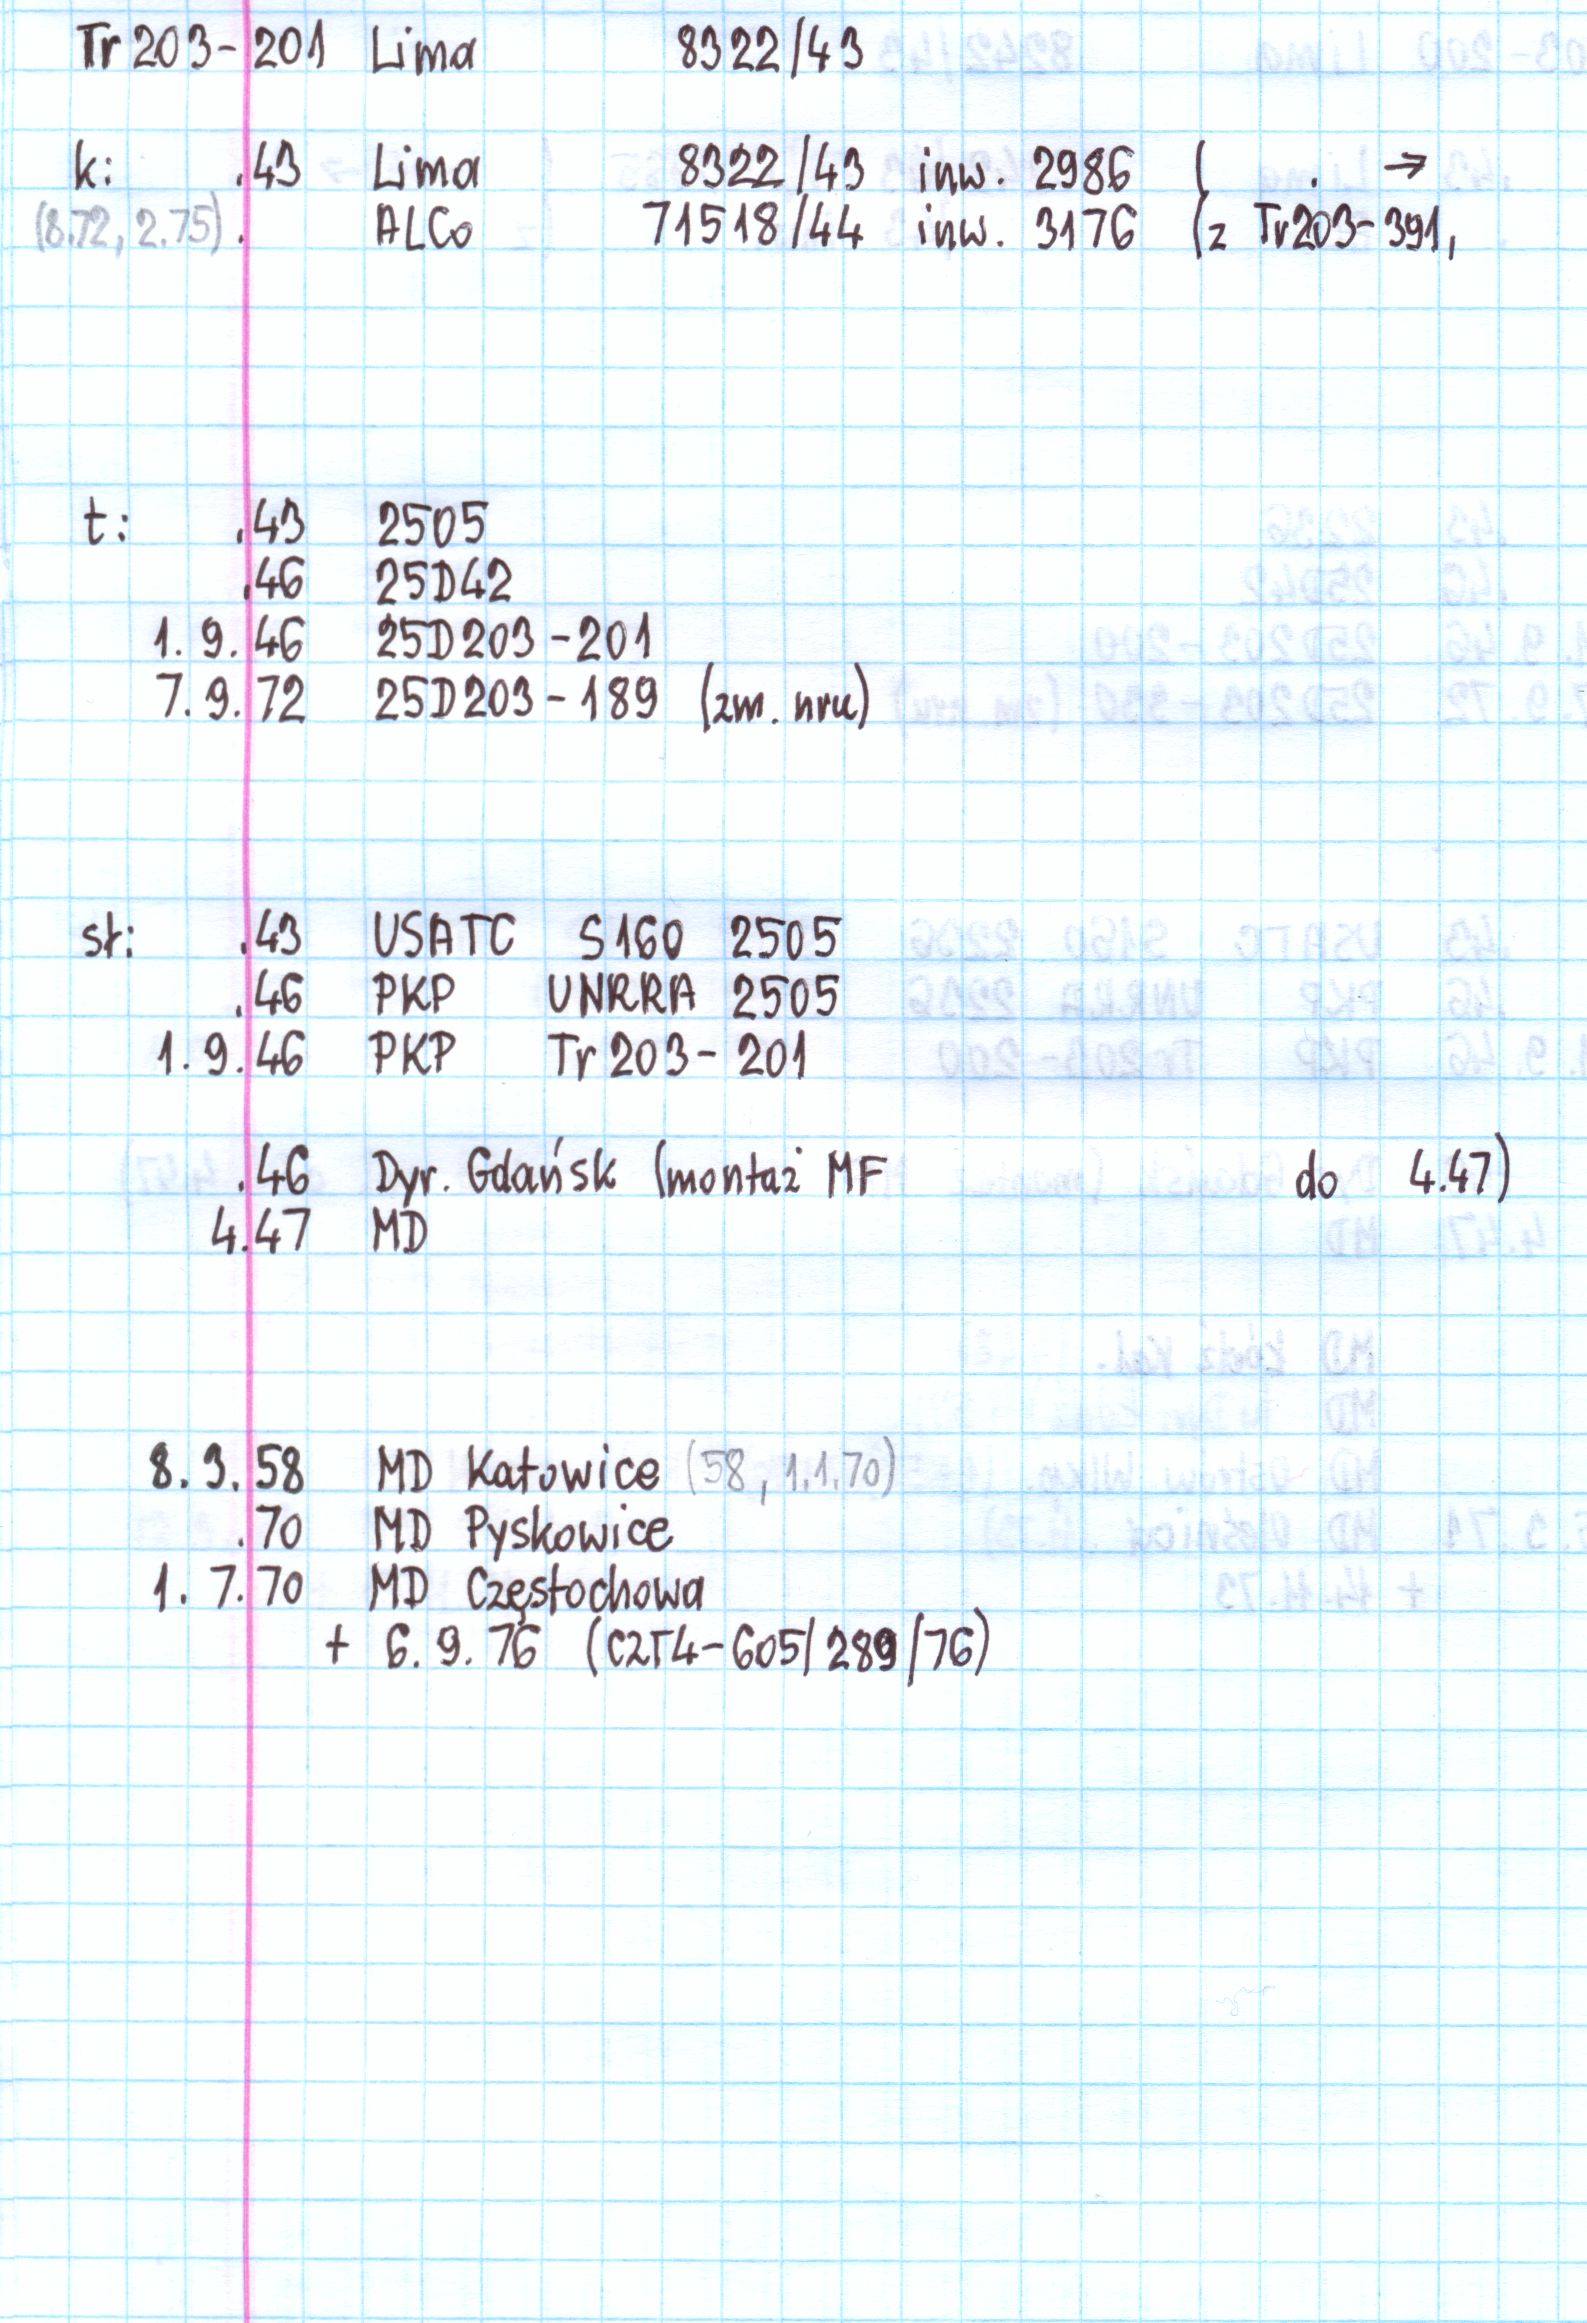 Tr 203-201 Lima 8322/43
k: .43 Lima 8322/43 inw. 2986 ( . →
(8.72, 2.75) . ALCo 71518/44 inw. 3176 (z Tr203-391,
t: .43 2505
.46 25D42
1.9.46 25D203-201
7.9.72 25D203-189 (zm. nru)
sł: .43 USATC S160 2505
.46 PKP UNRRA 2505
1.9.46 PKP Tr 203-201
.46 Dyr. Gdańsk (montaż MF do 4.47)
4.47 MD
8.3.58 MD Katowice (58, 1.1.70)
.70 MD Pyskowice
1.7.70 MD Częstochowa
+ 6.9.76 (CZT4-605/289/76)